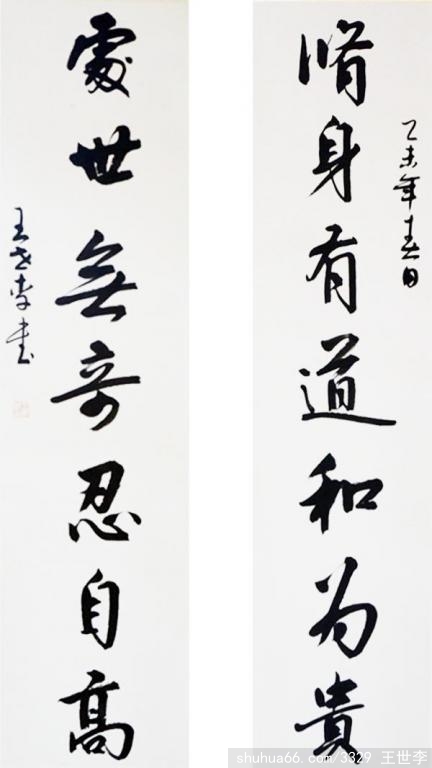 乙未年春日
脩身有道和为貴
處世無奇忍自高
王世李書
shuhua66.com/3329 王世李